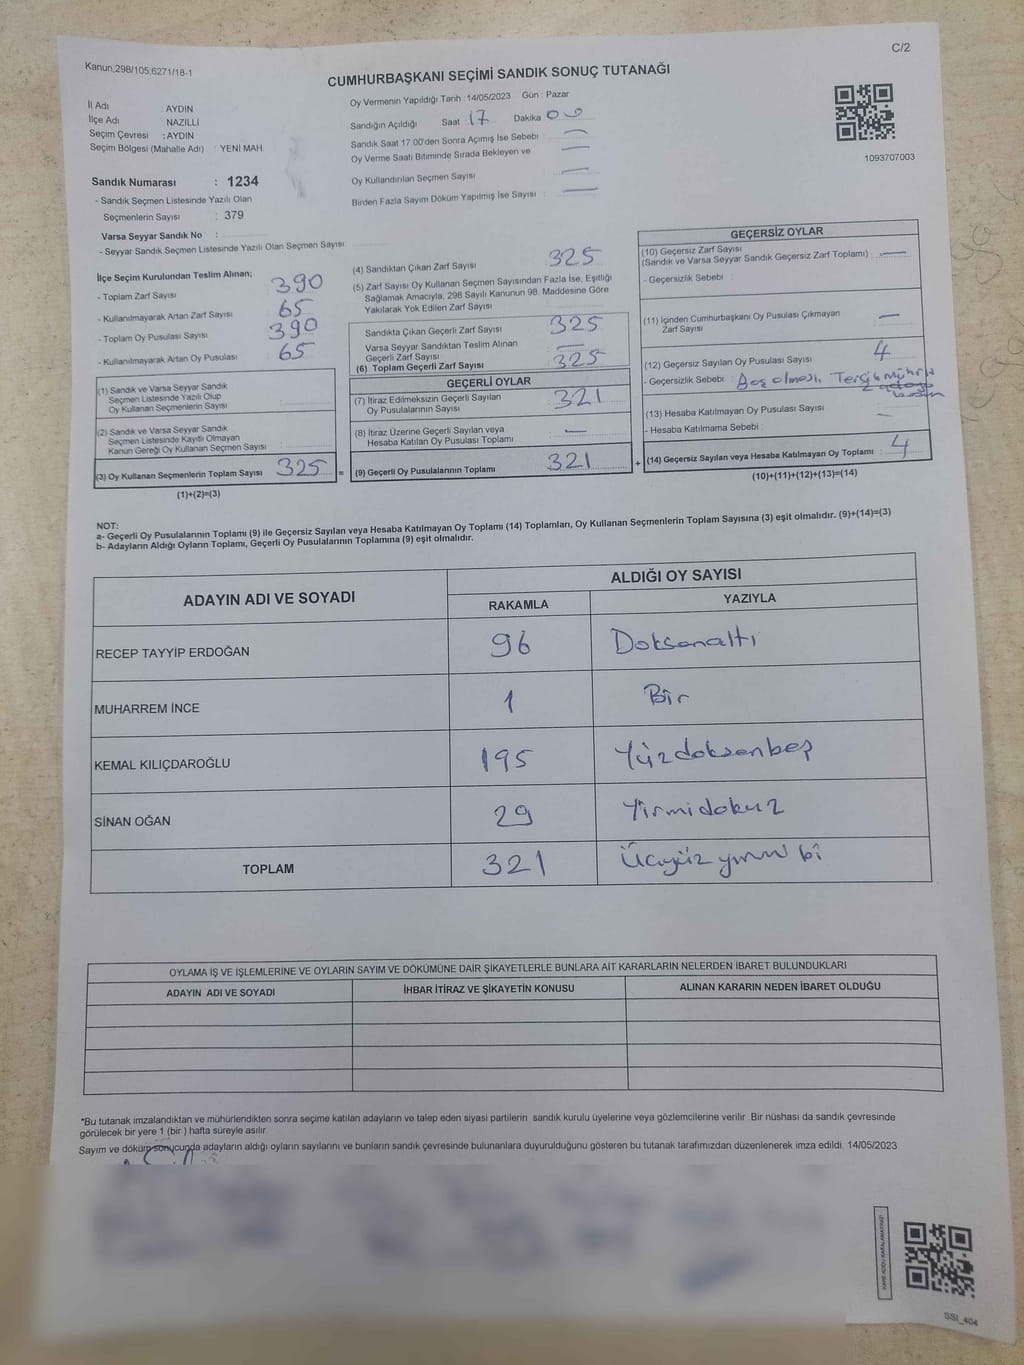 C/2
Kanun,298/105,6271/18-1
CUMHURBAŞKANI SEÇİMİ SANDIK SONUÇ TUTANAĞI
İl Adı : AYDIN
İlçe Adı : NAZİLLİ
Seçim Çevresi : AYDIN
Seçim Bölgesi (Mahalle Adı) : YENİ MAH.
Sandık Numarası : 1234
- Sandık Seçmen Listesinde Yazılı Olan
Seçmenlerin Sayısı : 379
Varsa Seyyar Sandık No :
- Seyyar Sandık Seçmen Listesinde Yazılı Olan Seçmen Sayısı:
Oy Vermenin Yapıldığı Tarih :14/05/2023 Gün : Pazar
Sandığın Açıldığı Saat 17 Dakika 00
Sandık Saat 17:00'den Sonra Açımış İse Sebebi : —
Oy Verme Saati Bitiminde Sırada Bekleyen ve —
Oy Kullandırılan Seçmen Sayısı : —
Birden Fazla Sayım Döküm Yapılmış İse Sayısı : —
1093707003
İlçe Seçim Kurulundan Teslim Alınan;
- Toplam Zarf Sayısı 390
- Kullanılmayarak Artan Zarf Sayısı 65
- Toplam Oy Pusulası Sayısı 390
- Kullanılmayarak Artan Oy Pusulası 65
(1) Sandık ve Varsa Seyyar Sandık
Seçmen Listesinde Yazılı Olup
Oy Kullanan Seçmenlerin Sayısı
(2) Sandık ve Varsa Seyyar Sandık
Seçmen Listesinde Kayıtlı Olmayan
Kanun Gereği Oy Kullanan Seçmen Sayısı
(3) Oy Kullanan Seçmenlerin Toplam Sayısı 325 =
(1)+(2)=(3)
(4) Sandıktan Çıkan Zarf Sayısı 325
(5) Zarf Sayısı Oy Kullanan Seçmen Sayısından Fazla İse, Eşitliği
Sağlamak Amacıyla, 298 Sayılı Kanunun 98. Maddesine Göre
Yakılarak Yok Edilen Zarf Sayısı
Sandıkta Çıkan Geçerli Zarf Sayısı 325
Varsa Seyyar Sandıktan Teslim Alınan
Geçerli Zarf Sayısı —
(6) Toplam Geçerli Zarf Sayısı 325
GEÇERLİ OYLAR
(7) İtiraz Edilmeksizin Geçerli Sayılan
Oy Pusulalarının Sayısı 321
(8) İtiraz Üzerine Geçerli Sayılan veya
Hesaba Katılan Oy Pusulası Toplamı —
(9) Geçerli Oy Pusulalarının Toplamı 321 +
GEÇERSİZ OYLAR
(10) Geçersiz Zarf Sayısı
(Sandık ve Varsa Seyyar Sandık Geçersiz Zarf Toplamı) : —
- Geçersizlik Sebebi :
(11) İçinden Cumhurbaşkanı Oy Pusulası Çıkmayan
Zarf Sayısı —
(12) Geçersiz Sayılan Oy Pusulası Sayısı 4
- Geçersizlik Sebebi : Boş olması,
(13) Hesaba Katılmayan Oy Pusulası Sayısı —
- Hesaba Katılmama Sebebi :
(14) Geçersiz Sayılan veya Hesaba Katılmayan Oy Toplamı : 4
(10)+(11)+(12)+(13)=(14)
NOT:
a- Geçerli Oy Pusulalarının Toplamı (9) ile Geçersiz Sayılan veya Hesaba Katılmayan Oy Toplamı (14) Toplamları, Oy Kullanan Seçmenlerin Toplam Sayısına (3) eşit olmalıdır. (9)+(14)=(3)
b- Adayların Aldığı Oyların Toplamı, Geçerli Oy Pusulalarının Toplamına (9) eşit olmalıdır.
ADAYIN ADI VE SOYADI ALDIĞI OY SAYISI
RAKAMLA YAZIYLA
RECEP TAYYİP ERDOĞAN 96 Doksanaltı
MUHARREM İNCE 1 Bir
KEMAL KILIÇDAROĞLU 195 Yüzdoksenbeş
SİNAN OĞAN 29 Yirmidokuz
TOPLAM 321 Üçyüz yirmi bi
OYLAMA İŞ VE İŞLEMLERİNE VE OYLARIN SAYIM VE DÖKÜMÜNE DAİR ŞİKAYETLERLE BUNLARA AİT KARARLARIN NELERDEN İBARET BULUNDUKLARI
ADAYIN ADI VE SOYADI İHBAR İTİRAZ VE ŞİKAYETİN KONUSU ALINAN KARARIN NEDEN İBARET OLDUĞU
*Bu tutanak imzalandıktan ve mühürlendikten sonra seçime katılan adayların ve talep eden siyasi partilerin sandık kurulu üyelerine veya gözlemcilerine verilir .Bir nüshası da sandık çevresinde
görülecek bir yere 1 (bir ) hafta süreyle asılır.
Sayım ve döküm sonucunda adayların aldığı oyların sayılarını ve bunların sandık çevresinde bulunanlara duyurulduğunu gösteren bu tutanak tarafımızdan düzenlenerek imza edildi. 14/05/2023
SSI_404